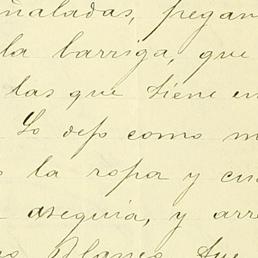 ñaladas, pegan
la barriga, que
las que tiene en
Lo dejo como m
la ropa y cu
aseguia, y arr